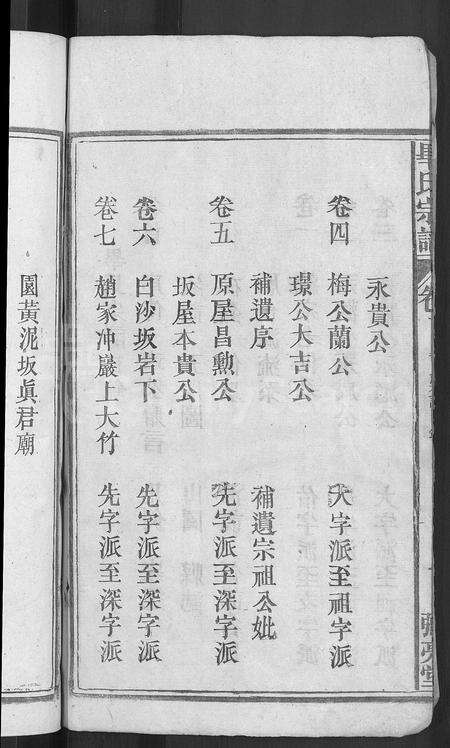 永貴公
卷四 梅公蘭公 天字派至祖字派
璟公大吉公
補遺序 補遺宗祖公妣
卷五 原屋昌勲公 先字派至深字派
坂屋本貴公
卷六 白沙坂岩下 先字派至深字派
卷七 趙家冲巖上大竹 先字派至深字派
園黃泥坂眞君廟
氏宗譜
卷